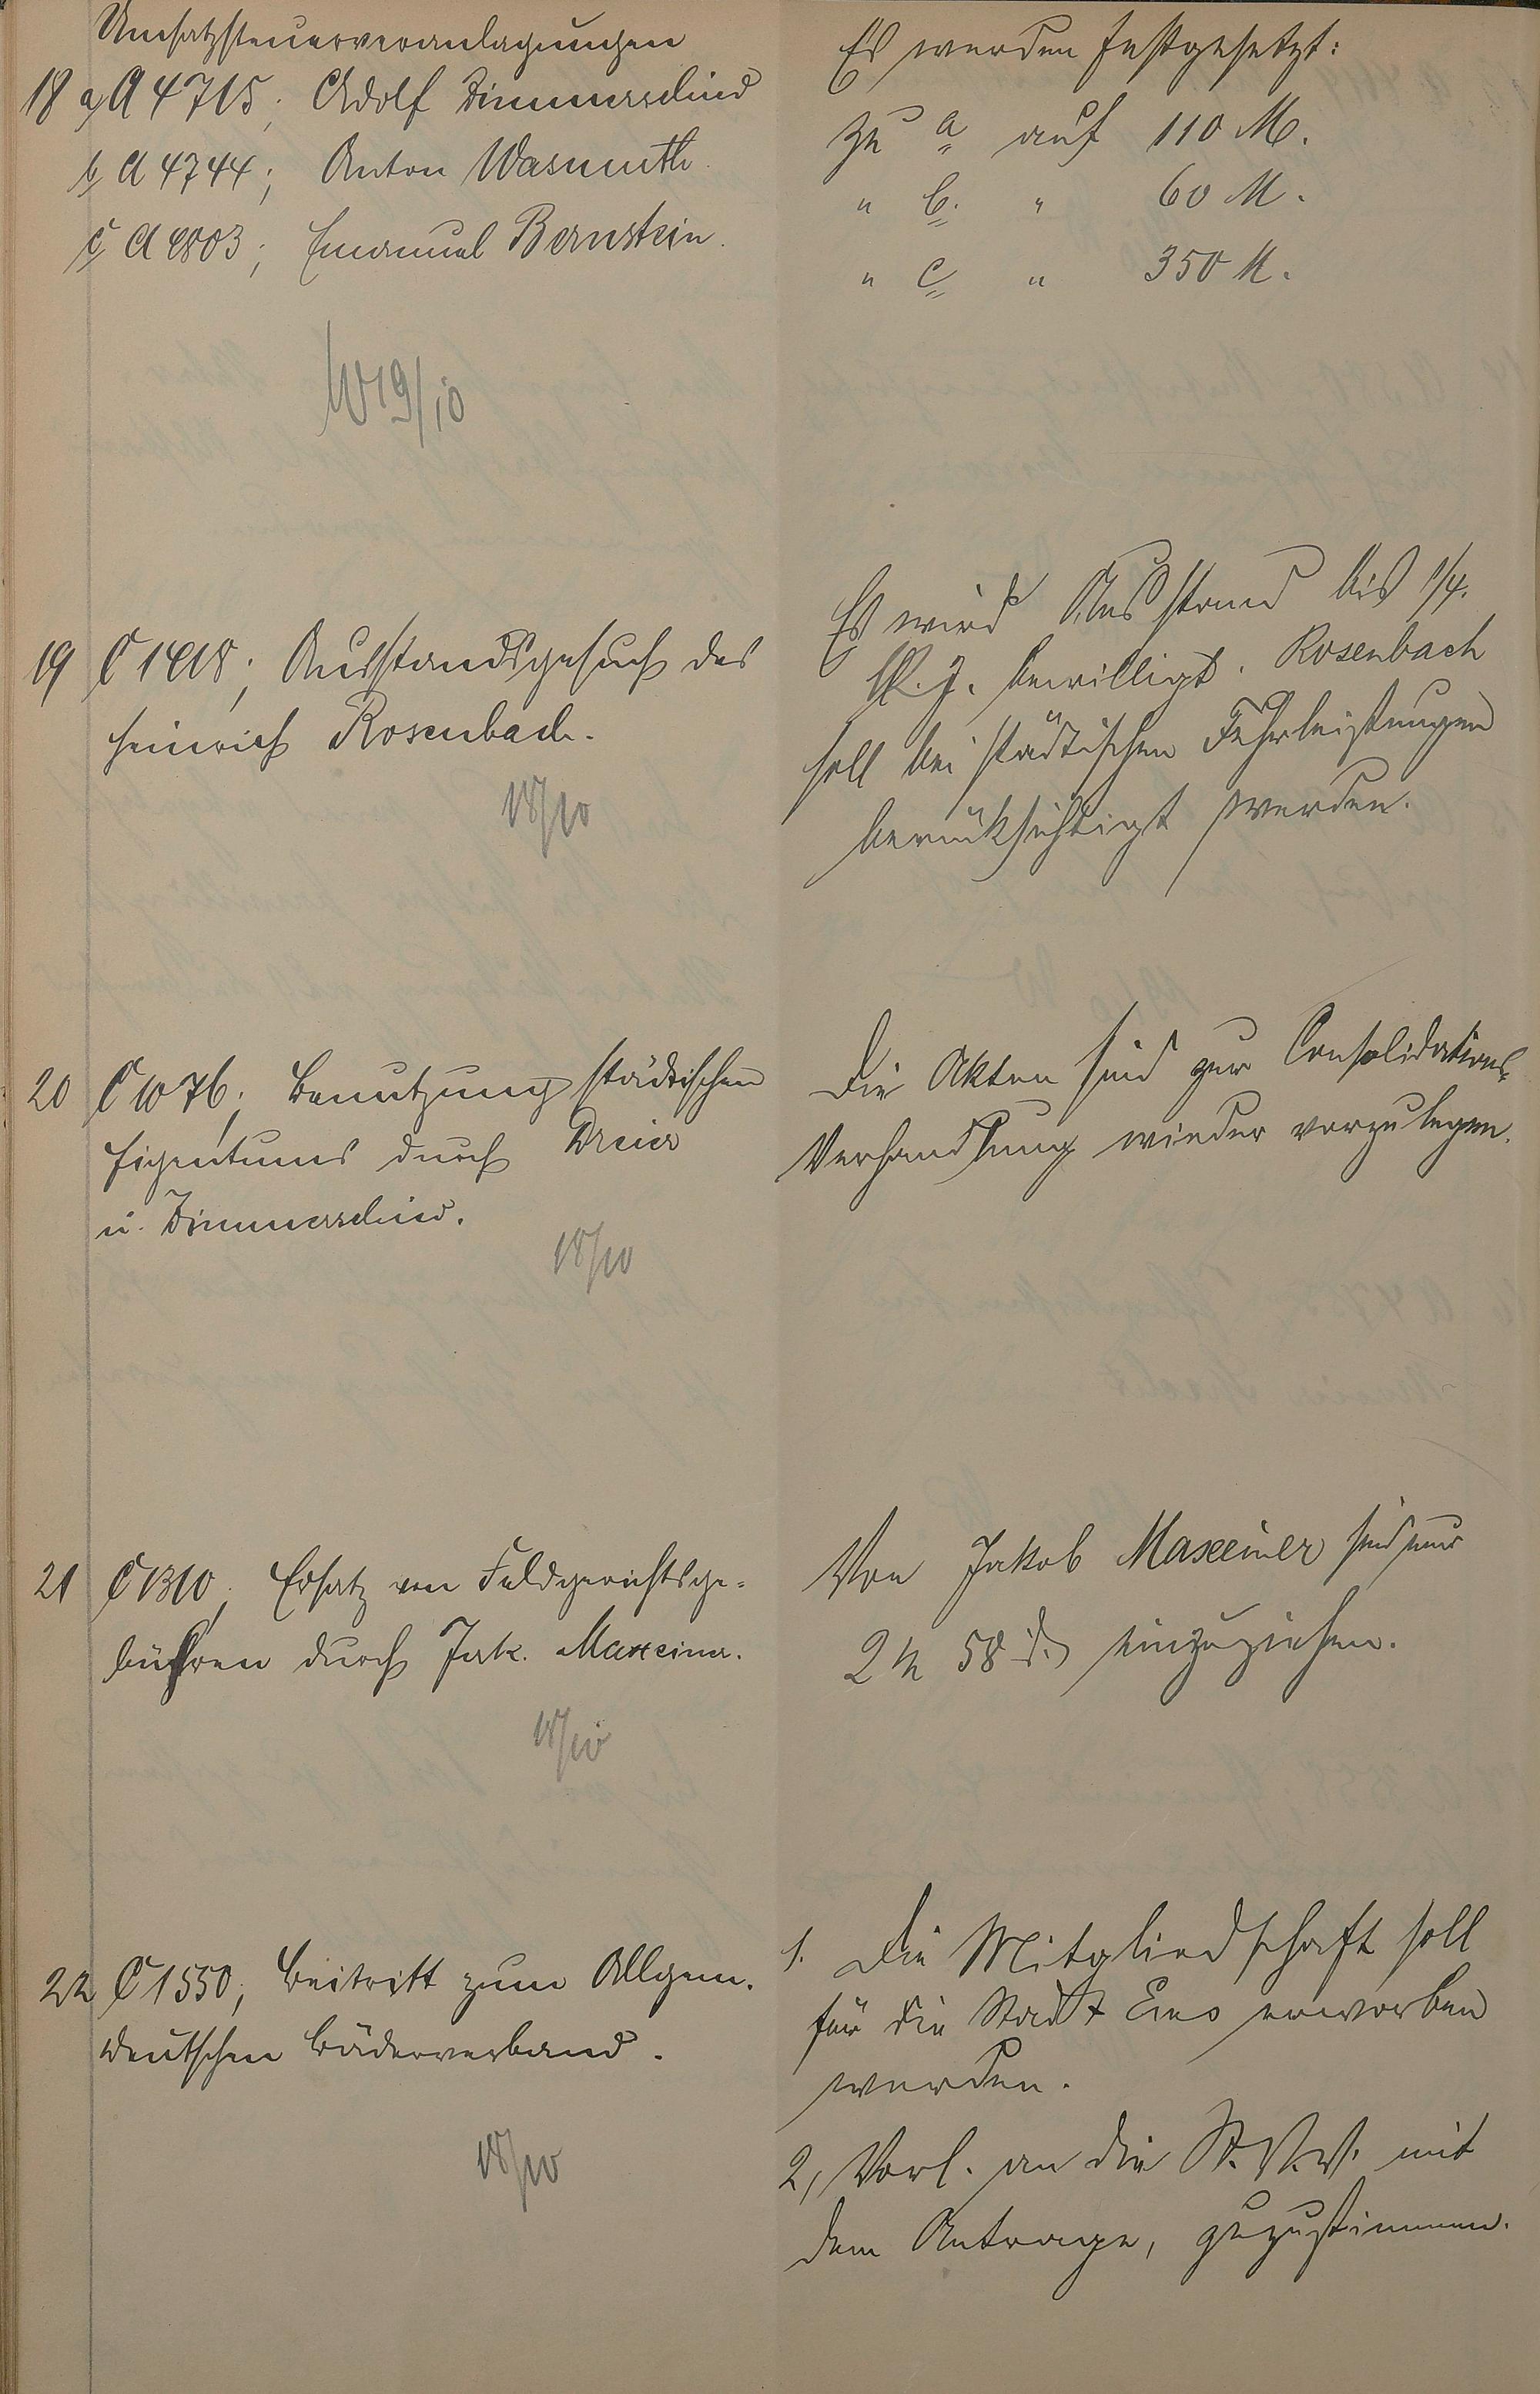 Umsatzsteuerveranlagungen
18 a, A 4715; Adolf Zimmerschied
b, A 4744; Anton Wasmuth.
c, A 4803; Emanuel Bernstein.
W 19/10
Es werden festgesetzt:
zu a auf 110 M.
" b. " 60 M.
" c " 350 M.
19 C 1418; Ausstandsgesuch des
Heinrich Rosenbach.
18/10
Es wird Ausstand bis 1/4.
k. J. bewilligt. Rosenbach
soll bei städtischen Fuhrleistungen
berücksichtigt werden.
20 C 1076; Benutzung städtischen
Eigentums durch Dreier
u. Zimmerschied.
18/10
Die Akten sind zur Consolidations-
Verhandlung wieder vorzulegen.
21 C 1310; Ersatz von Feldgerichtsge-
bühren durch Jak. Maxeiner.
18/10
Von Jakob Maxeiner sind nur
2 M 58 d. einzuziehen.
22 C 1550; Beitritt zum Allgem.
Deutschen Bäderverband.
18/10
1. Die Mitgliedschaft soll
für die Stadt Ems erworben
werden.
2, Vorl. an die St. V. V. mit
dem Antrage, zuzustimmen.